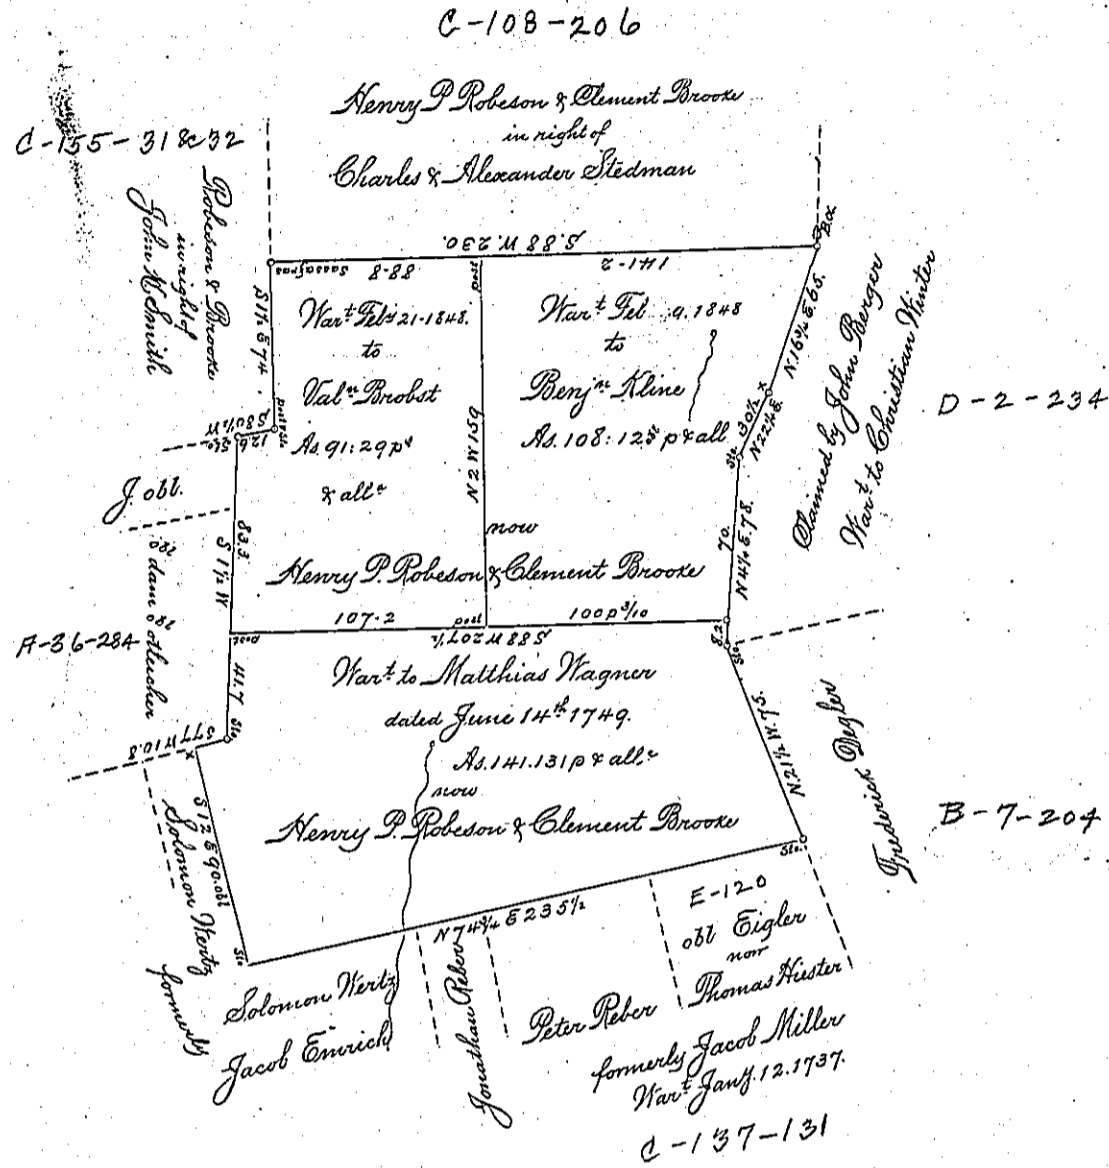 C-108-206
Henry P Robeson & Clement Brooke
in right of
Charles & Alexander Stedman
C-155-31&32
Robeson & Brooke
in right of
John McSmith
S. 88 W. 230.
88-8
Sassafras
post
141-2
B.O.
S 1½ E 74
War.t Feb.y 21-1848.
to
Val.n Brobst
As. 91: 29 p.s
& all.e
N 2 W 159
War.t Feb 9. 1848
to
Benj.n Kline
As. 108: 123 p & all
N. 16¾ E. 65.
x
30½
N 22½ E.
Sto.
Claimed by John Berger
War.t to Christian Winter
D-2-234
post & Sto
S 80½ W
12.6
Sto.
J obl.
83.3
S 1½ W
now
Henry P. Robeson & Clement Brooke
70.
N 4½ E. 78.
107-2
post
100 p 3/10
S 88 W 207½
8.2
Sto.
A-36-284
obl dam obl ottlucher
post
41.7
Sto
S 77 W 10.8
x
War.t to Matthias Wagner
dated June 14th 1749.
As. 141. 131 p & all.e
now
Henry P. Robeson & Clement Brooke
N. 21½ W. 75.
Frederick Degler
B-7-204
Sto.
S 12 E 90. obl
Solomon Wertz
formerly
Sto
N 74¾ E 235½
Solomon Wertz
Jacob Emrich
Jonathan Reber
Peter Reber
E-120
obl Eigler
now
Thomas Hiester
formerly Jacob Miller
War.t Jan.y 12. 1737.
C-137-131